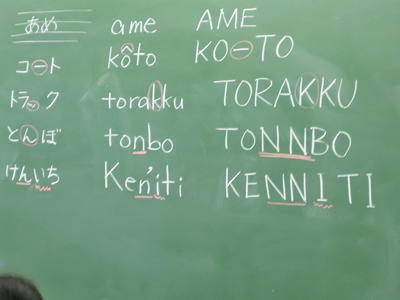 あめ ame AME
コート kôto KO-TO
トラック torakku TORAKKU
とんぼ tonbo TONNBO
けんいち Ken'iti KENNITI